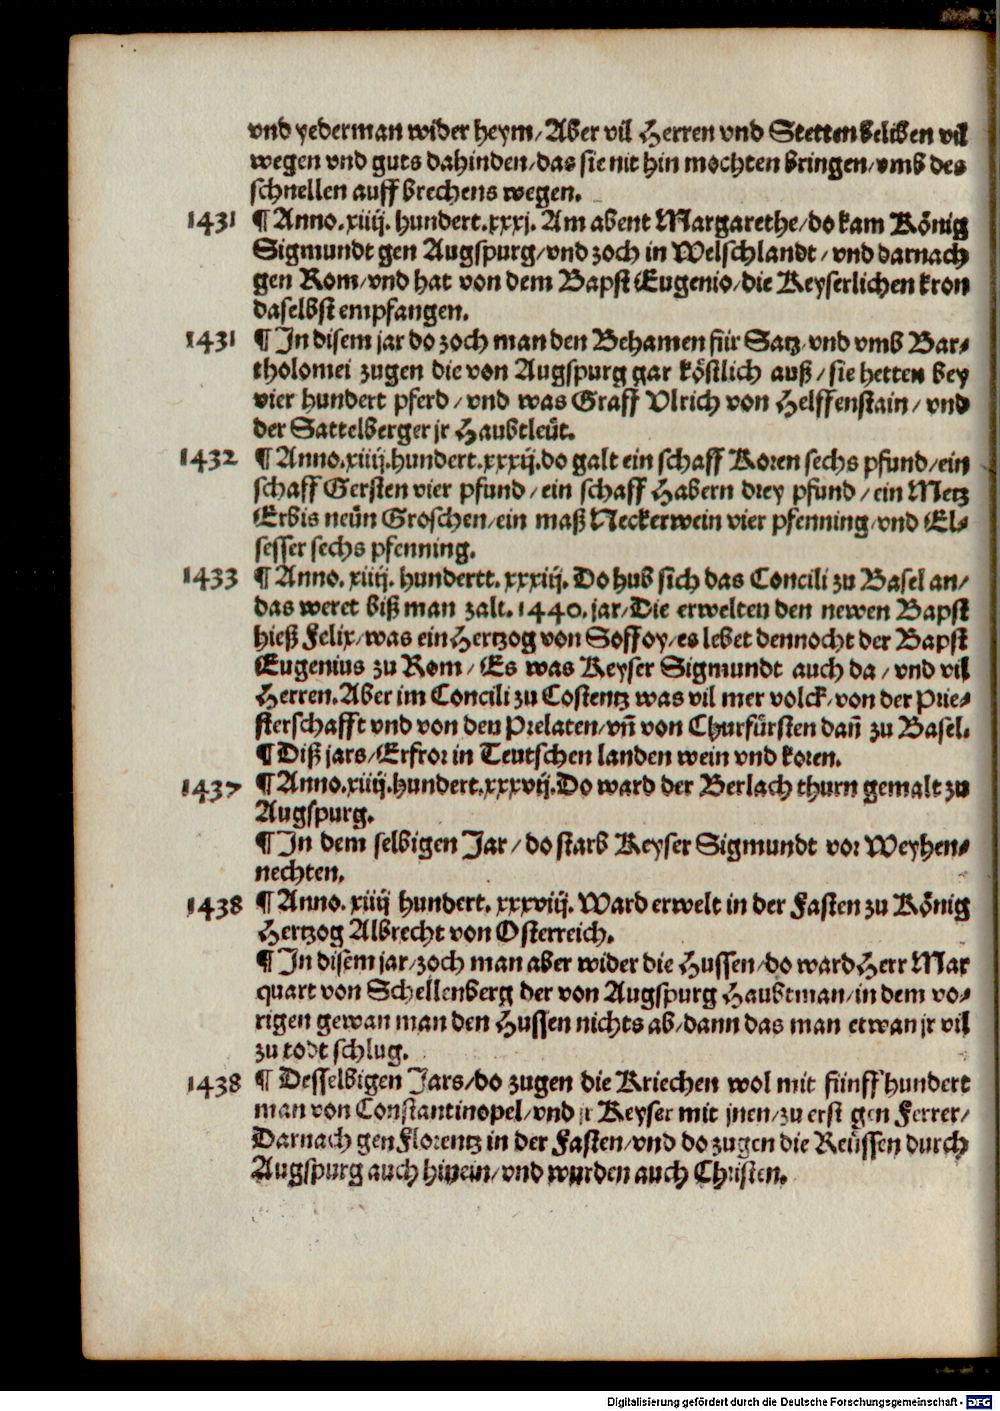 vnd yederman wider heym/Aber vil Herren vnd Stetten beliben vil
wegen vnd guts dahinden/das sie nit hin mochten bringen/vmb des
schnellen auff brechens wegen.
1431 ¶ Anno.xiiij.hundert.xxxj. Am abent Margarethe/do kam König
Sigmundt gen Augspurg/vnd zoch in Welschlandt/vnd darnach
gen Rom/vnd hat von dem Bapst Eugenio/die Keyserlichen kron
daselbst empfangen.
1431 ¶ In disem jar do zoch man den Behamen für Satz/vnd vmb Bar⸗
tholomei zugen die von Augspurg gar köstlich auß/sie hetten bey
vier hundert pferd/vnd was Graff Vlrich von Helffenstain/vnd
der Sattelberger jr Haubtleüt.
1432 ¶ Anno.xiiij.hundert.xxxij.do galt ein schaff Koren sechs pfund/ein
schaff Gersten vier pfund/ein schaff Habern drey pfund/ein Metz
Erbis neün Groschen/ein maß Neckerwein vier pfenning/vnd El⸗
sesser sechs pfenning.
1433 ¶ Anno. xiiij. hundertt. xxxiij. Do hub sich das Concili zu Basel an/
das weret biß man zalt.1440.jar/Die erwelten den newen Bapst
hieß Felix/was ein Hertzog von Soffoy/es lebet dennocht der Bapst
Eugenius zu Rom/Es was Keyser Sigmundt auch da/vnd vil
Herren.Aber im Concili zu Costentz was vil mer volck/von der Prie⸗
sterschafft vnd von den Prelaten/vn̄ von Churfürsten dan̄ zu Basel.
¶ Diß jars/Erfror in Teutschen landen wein vnd koren.
1437 ¶ Anno.xiiij.hundert.xxxvij.Do ward der Berlach thurn gemalt zu
Augspurg.
¶ In dem selbigen Jar/do starb Keyser Sigmundt vor Weyhen⸗
nechten.
1438 ¶ Anno.xiiij hundert. xxxviij. Ward erwelt in der Fasten zu König
Hertzog Albrecht von Osterreich.
¶ In disem jar/zoch man aber wider die Hussen/do ward Herr Mar
quart von Schellenberg der von Augspurg Haubtman/in dem vo⸗
rigen gewan man den Hussen nichts ab/dann das man etwan jr vil
zu todt schlug.
1438 ¶ Desselbigen Jars/do zugen die Kriechen wol mit fünff hundert
man von Constantinopel/vnd jr Keyser mit jnen/zu erst gen Ferrer/
Darnach gen Florentz in der Fasten/vnd do zugen die Reüssen durch
Augspurg auch hinein/vnd wurden auch Christen.
Digitalisierung gefördert durch die Deutsche Forschungsgemeinschaft - DFG